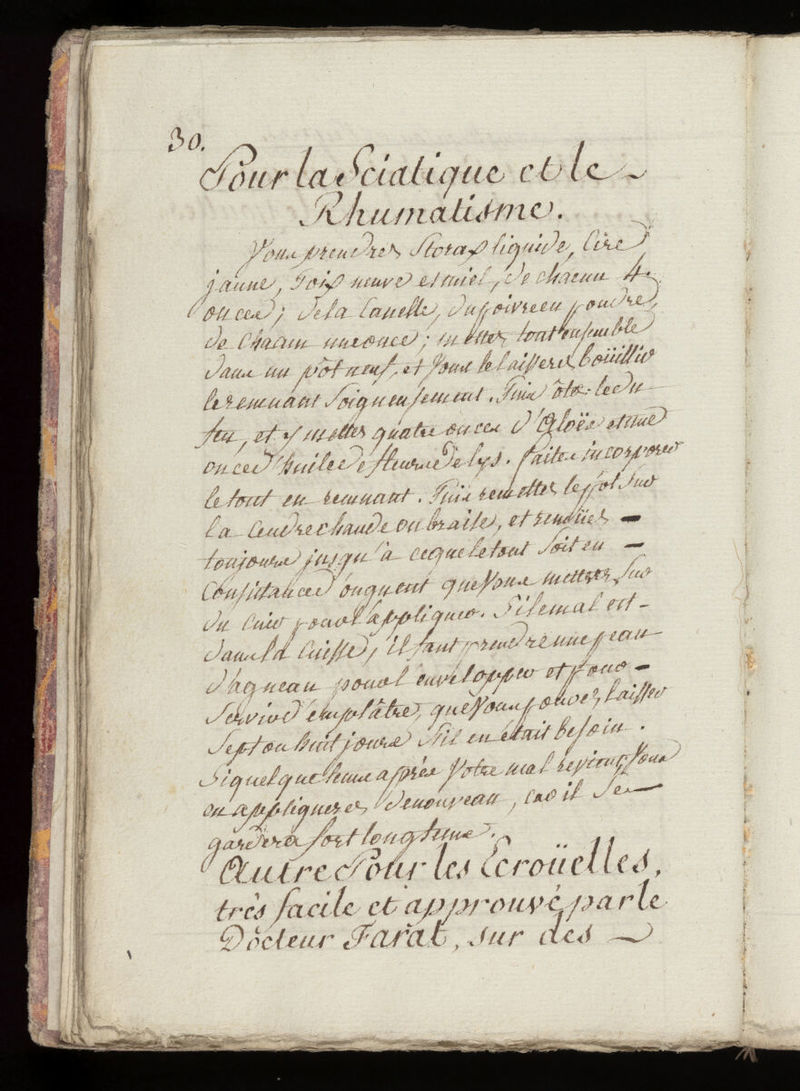 30.
Pour la Sciatique et le
Rhumatisme.
Vous prendrez Storax liquide, Cire
jaune, Poix neuve et miel, de chacun 4.
onces; de la Canelle, du poivre en poudre,
de Chacun une once; mettez tout ensemble
dans un pôt neuf, et Vous le laisserez boüillir
le remuant Soigneusement. Puis ôtez-le du
feu, et y mettez quatre onces d'Aloës et une
once d'huile de fleurs de lys. faites incorporer
le tout en remuant. Puis remettez le pot Sur
la Cendre chaude ou braise, et remüez —
toujours jusqu'à ce que le tout Soit en —
Consistance d'onguent que Vous mettrez Sur
du Cuir pour l'appliquer. Si le mal est -
dans la Cuisse, il faut prendre une peau
d'agneau pour l'envelopper et pour —
Servir d'emplâtre, que Vous pouvez laisser
Sept ou huit jours s'il en était besoin.
Si quelque tems après Votre mal revient, Vous
en appliquerez de nouveau, car il Se —
gardera fort longtems.
Autre Pour les Ecroüelles,
très facile et approuvé par le
Docteur Farat, sur des —